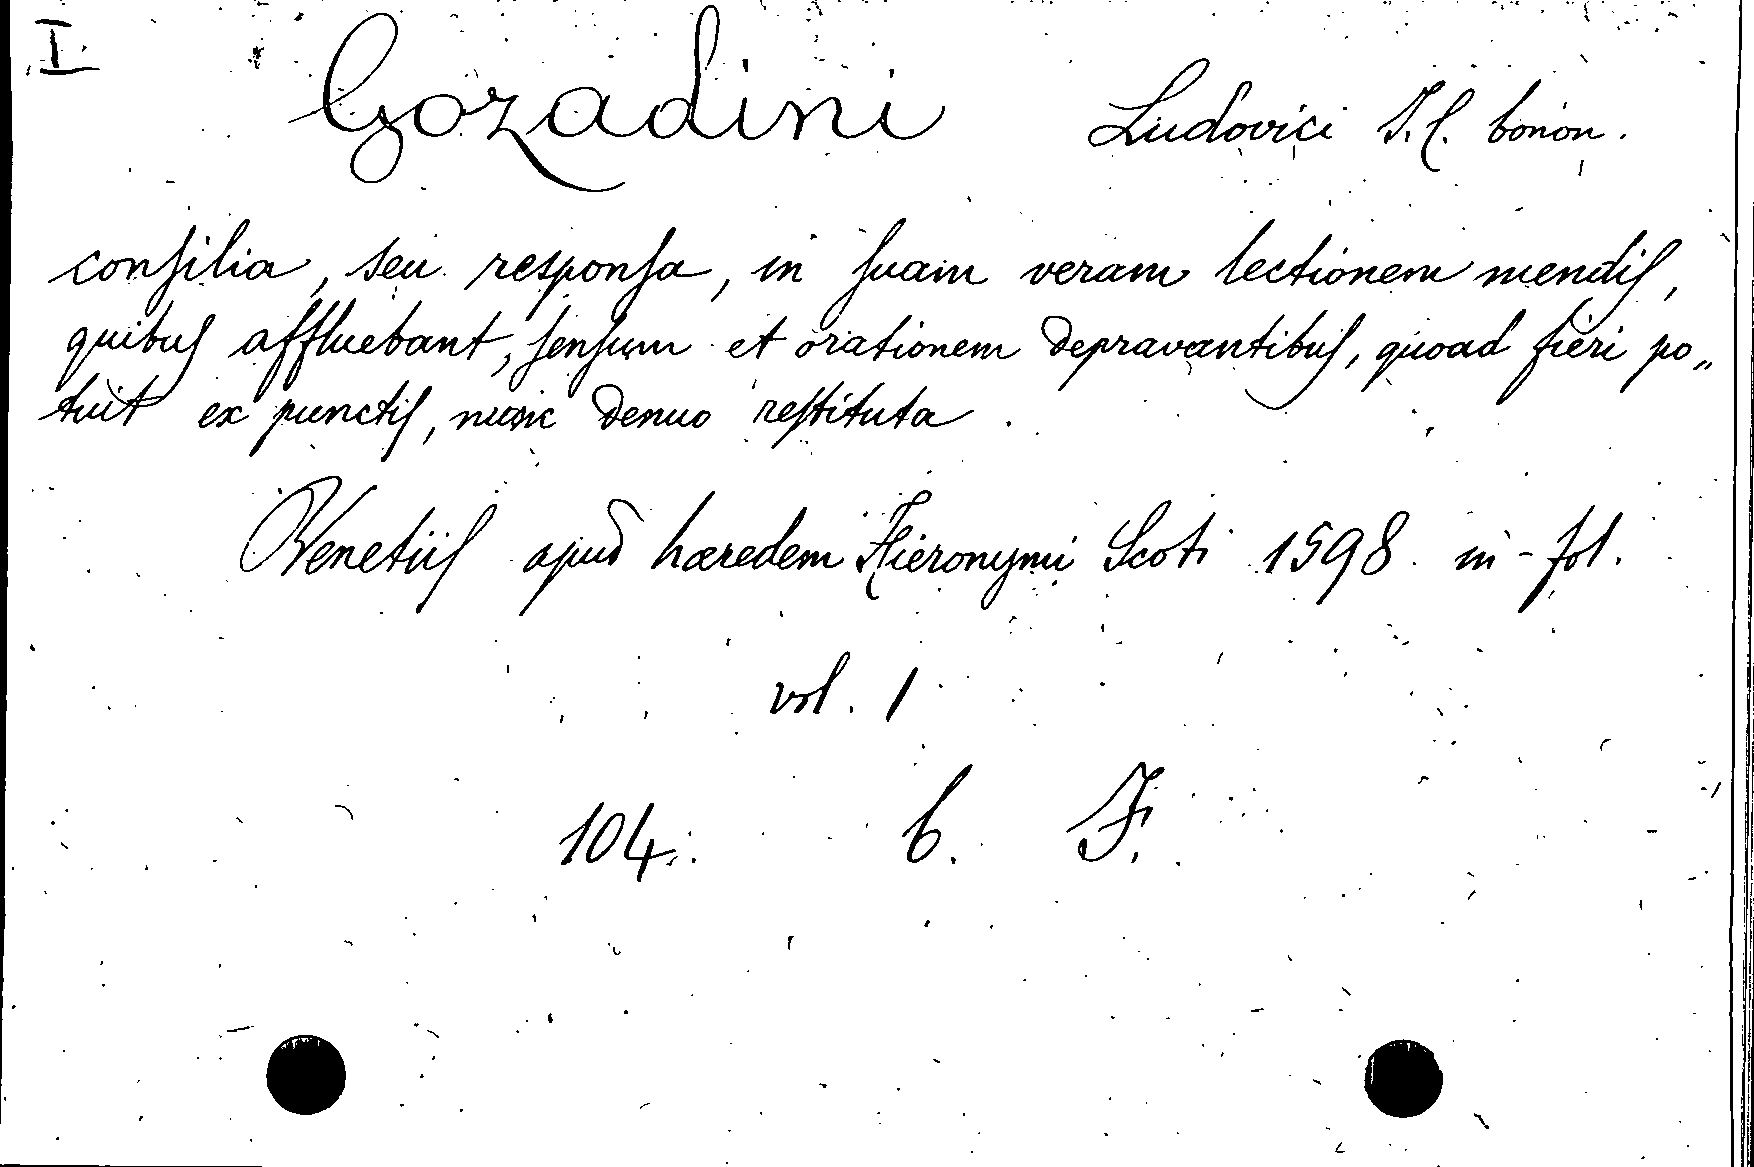 I
Gozadini Ludovici I. C. bonon.
conſilia, seu responſa, in ſuam veram lectionem mendiſ,
quibuſ affluebant, ſenſum et orationem depravantibuſ, quoad fieri po„
tuit ex punctiſ, nunc denuo reſtituta.
Venetiiſ apud hæredem Hieronymi Scoti 1598 in-fol.
vol. 1
104. 6. F.